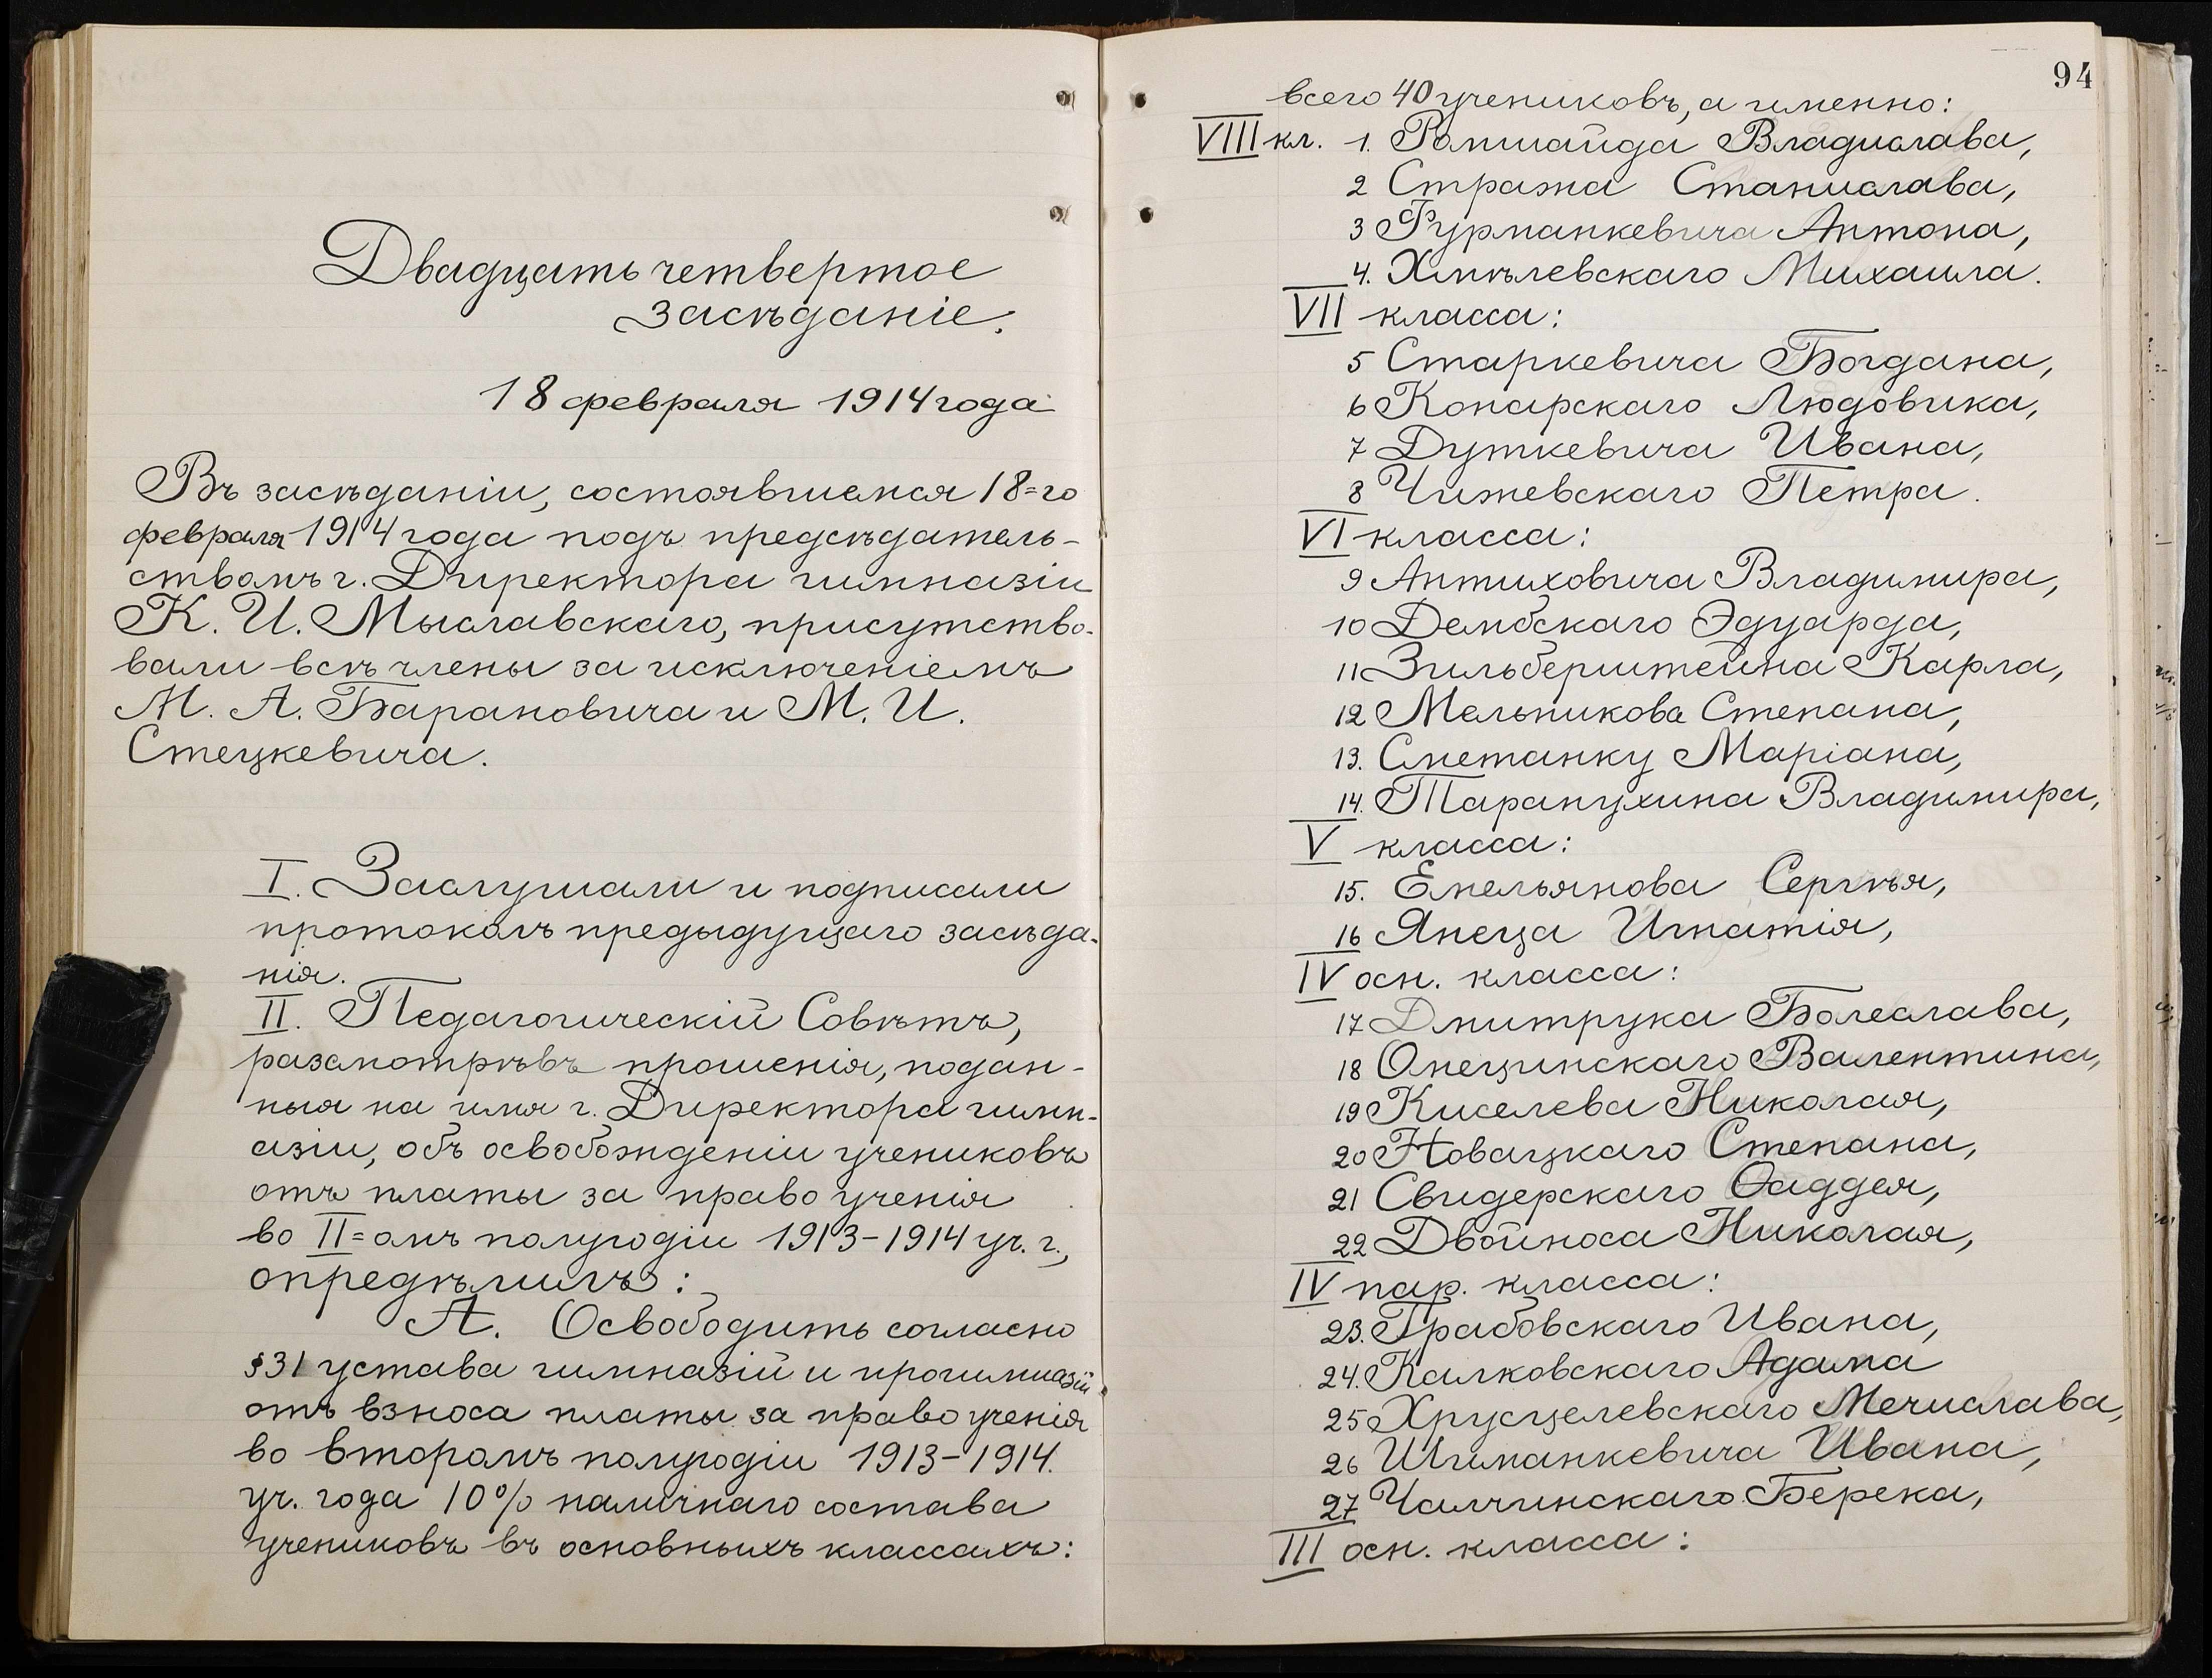 Двадцать четвертое
засѣданіе.
18 февраля 1914 года
Въ засѣданіи, состоявшемся 18=го
февраля 1914 года подъ предсѣдатель-
ствомъ г. Директора гимназіи
К. И. Мыславскаго, присутство-
вали всѣ члены за исключеніемъ
М. А. Барановича и М. И.
Стецкевича.
I. Заслушали и подписали
протоколъ предыдущаго засѣда-
нія.
II. Педагогическій Совѣтъ,
разсмотрѣвъ прошенія, подан-
ныя на имя г. Директора гимн-
азіи, объ освобожденіи учениковъ
отъ платы за право ученія
во II=омъ полугодіи 1913-1914 уч. г.,
опредѣлилъ:
А. Освободить согласно
§31 устава гимназій и прогимназій
отъ взноса платы за право ученія
во второмъ полугодіи 1913-1914.
уч. года 10% наличнаго состава
учениковъ въ основныхъ классахъ:
94
всего 40 учениковъ, а именно:
VIII кл. 1. Ромшайда Владислава,
2 Стража Станислава,
3 Фурманкевича Антона,
4. Хмѣлевскаго Михаила.
VII класса:
5 Старкевича Богдана,
6 Конарскаго Людовика,
7 Дуткевича Ивана,
8 Чижевскаго Петра.
VI класса:
9 Антиховича Владимира,
10 Дембскаго Эдуарда,
11 Зильберштейна Карла,
12 Мельникова Степана,
13. Сметанку Маріана,
14. Таранухина Владимира,
V класса:
15. Емельянова Сергѣя,
16 Янеца Игнатія,
IV осн. класса:
17 Дмитрука Болеслава,
18 Онещинскаго Валентина,
19 Киселева Николая,
20 Новацкаго Степана,
21 Свидерскаго Ѳаддея,
22 Двойноса Николая,
IV пар. класса:
23. Грабовскаго Ивана,
24. Калковскаго Адама
25 Хрусцелевскаго Мечислава,
26 Шиманкевича Ивана,
27 Чалчинскаго Берека,
III осн. класса: